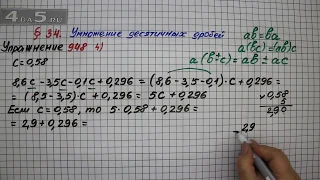 4A5.ru
§ 34. Умножение десятичных дробей
ab = ba
Упражнение 948 4)
a(bc) = (ab)c
C = 0,58
a(b±c) = ab ± ac
8,6c - 3,5c - 0,1c + 0,296 = (8,6 - 3,5 - 0,1)·c + 0,296 =
= (8,5 - 3,5)·c + 0,296 = 5c + 0,296
Если c = 0,58, то 5·0,58 + 0,296 =
= 2,9 + 0,296 =
× 0,58
5
2,90
2,9